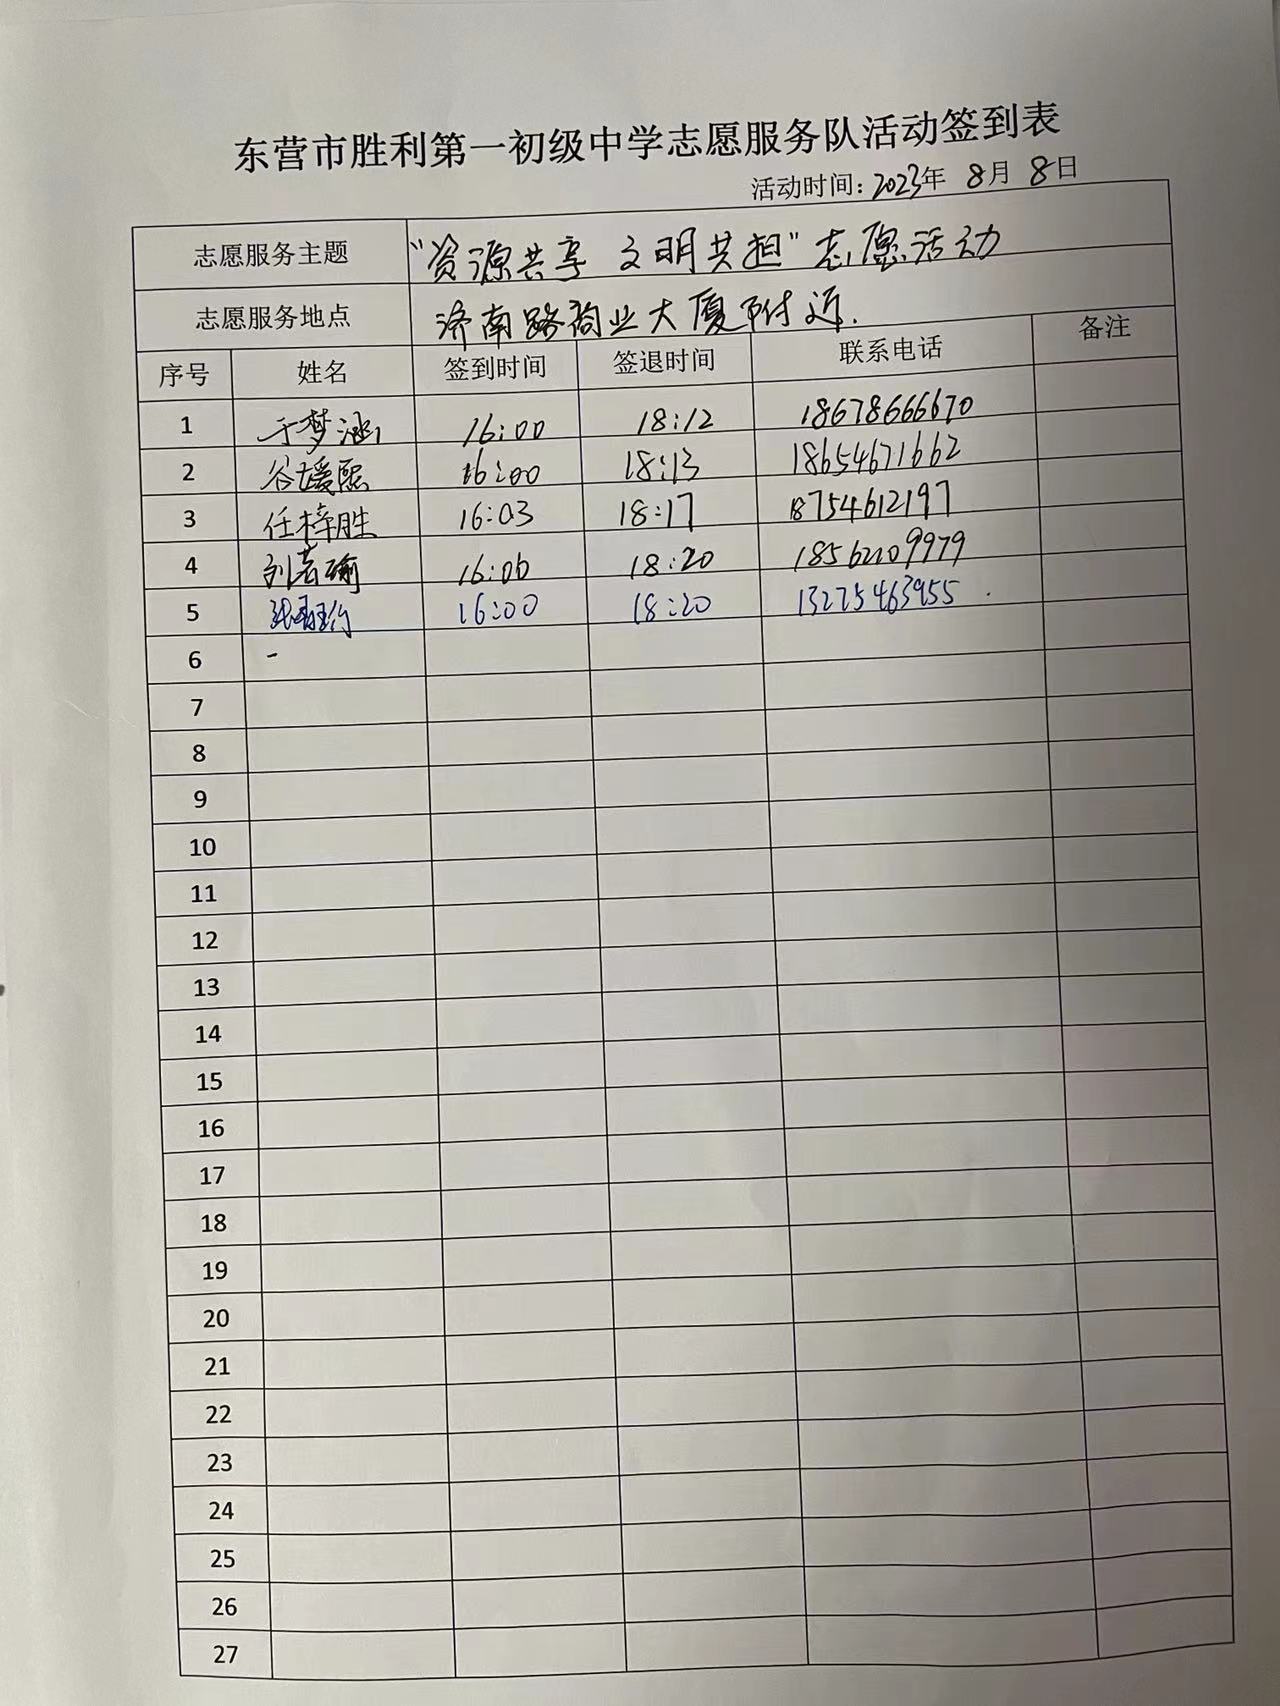 东营市胜利第一初级中学志愿服务队活动签到表
活动时间：2023年 8月 8日
志愿服务主题 “资源共享 文明共担”志愿活动
志愿服务地点 济南路商业大厦附近.
序号 姓名 签到时间 签退时间 联系电话 备注
1 于梦涵 16:00 18:12 18678666670
2 谷媛熙 16:00 18:13 18654671662
3 任梓胜 16:03 18:17 18754612197
4 刘若瑜 16:06 18:20 18562109979
5 16:00 18:20 13275463955
6 -
7
8
9
10
11
12
13
14
15
16
17
18
19
20
21
22
23
24
25
26
27